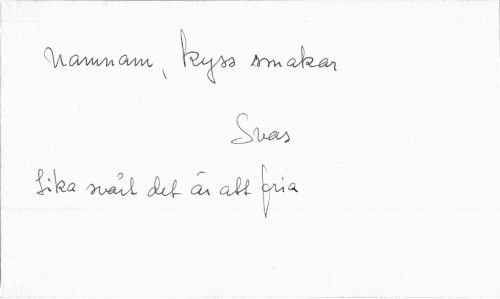 Namnam, kyss smakar
Svas
Lika svårt det är att fria